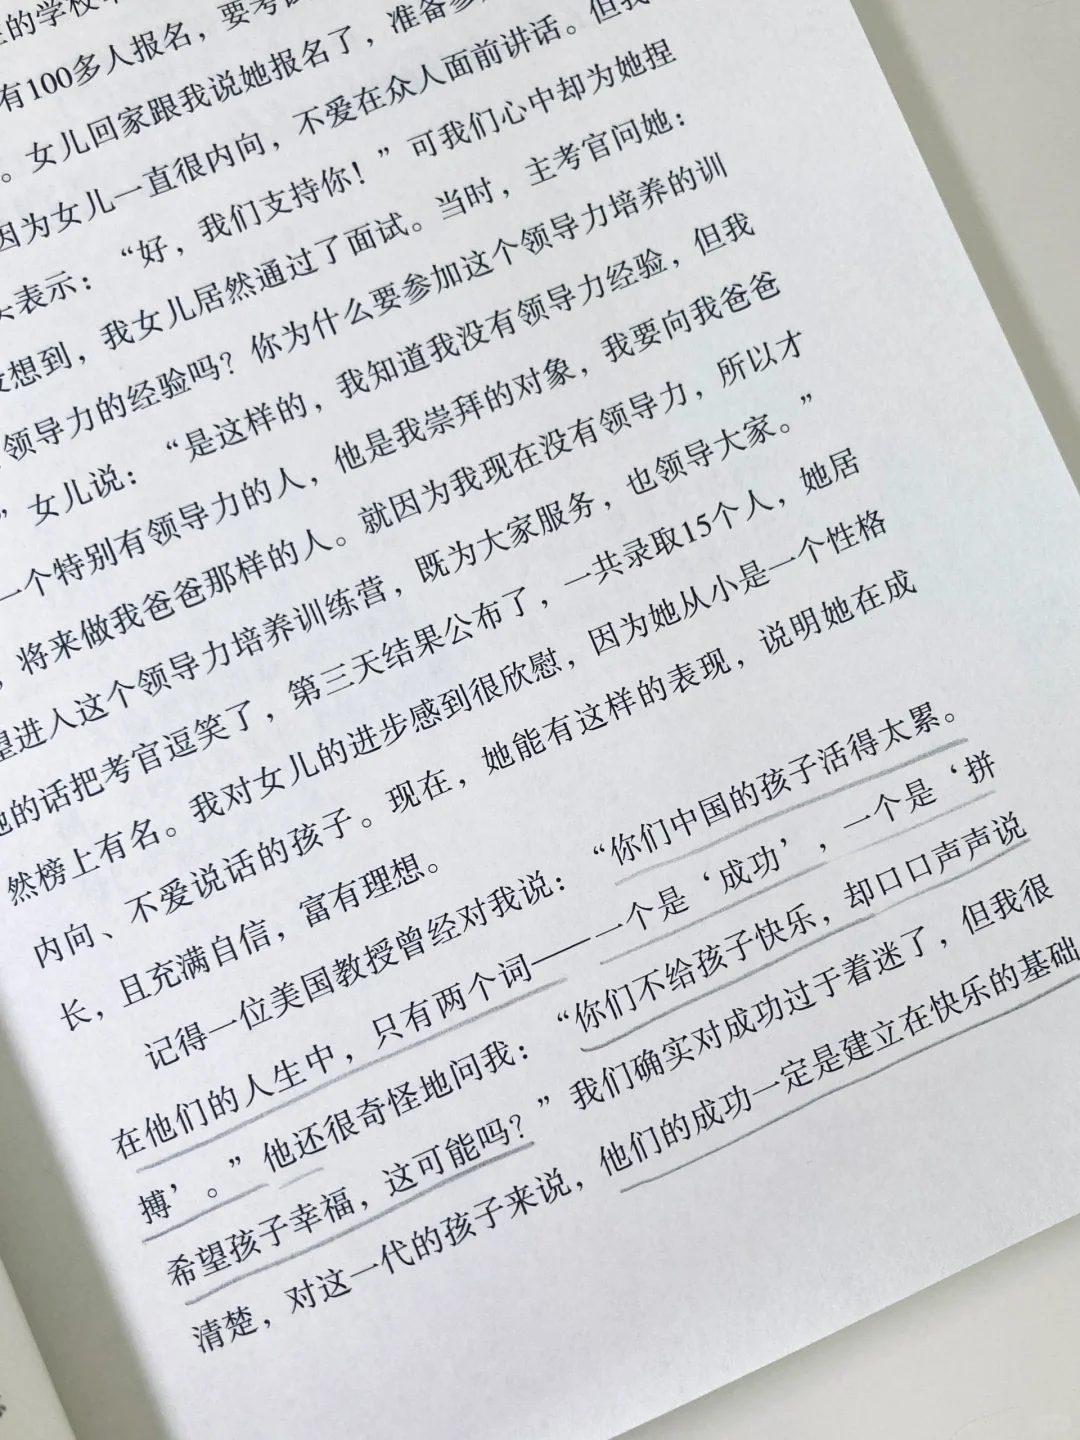 的学校
有100多人报名，要考
。女儿回家跟我说她报名了，准备参
因为女儿一直很内向，不爱在众人面前讲话。但我
表示：“好，我们支持你！”可我们心中却为她捏
没想到，我女儿居然通过了面试。当时，主考官问她：
领导力的经验吗？你为什么要参加这个领导力培养的训
”女儿说：“是这样的，我知道我没有领导力经验，但我
一个特别有领导力的人，他是我崇拜的对象，我要向我爸爸
，将来做我爸爸那样的人。就因为我现在没有领导力，所以才
望进入这个领导力培养训练营，既为大家服务，也领导大家。”
她的话把考官逗笑了，第三天结果公布了，一共录取15个人，她居
然榜上有名。我对女儿的进步感到很欣慰，因为她从小是一个性格
内向、不爱说话的孩子。现在，她能有这样的表现，说明她在成
长，且充满自信，富有理想。
记得一位美国教授曾经对我说：“你们中国的孩子活得太累。
在他们的人生中，只有两个词——一个是‘成功’，一个是‘拼
搏’。”他还很奇怪地问我：“你们不给孩子快乐，却口口声声说
希望孩子幸福，这可能吗？”我们确实对成功过于着迷了，但我很
清楚，对这一代的孩子来说，他们的成功一定是建立在快乐的基础